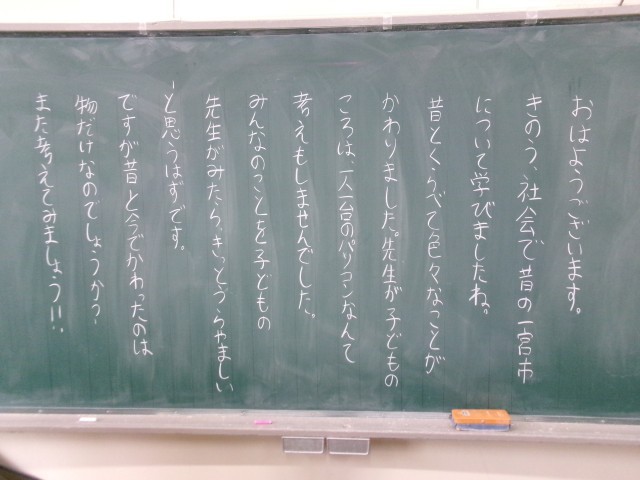 おはようございます。
きのう、社会で昔の一宮市
について学びましたね。
昔とくらべて色々なことが
かわりました。先生が子どもの
ころは、一人一台のパソコンなんて
考えもしませんでした。
みんなのことを子どもの
先生がみたら、きっとうらやましい
ーと思うはずです。
ですが昔と今でかわったのは
物だけなのでしょうか?
また考えてみましょう!!